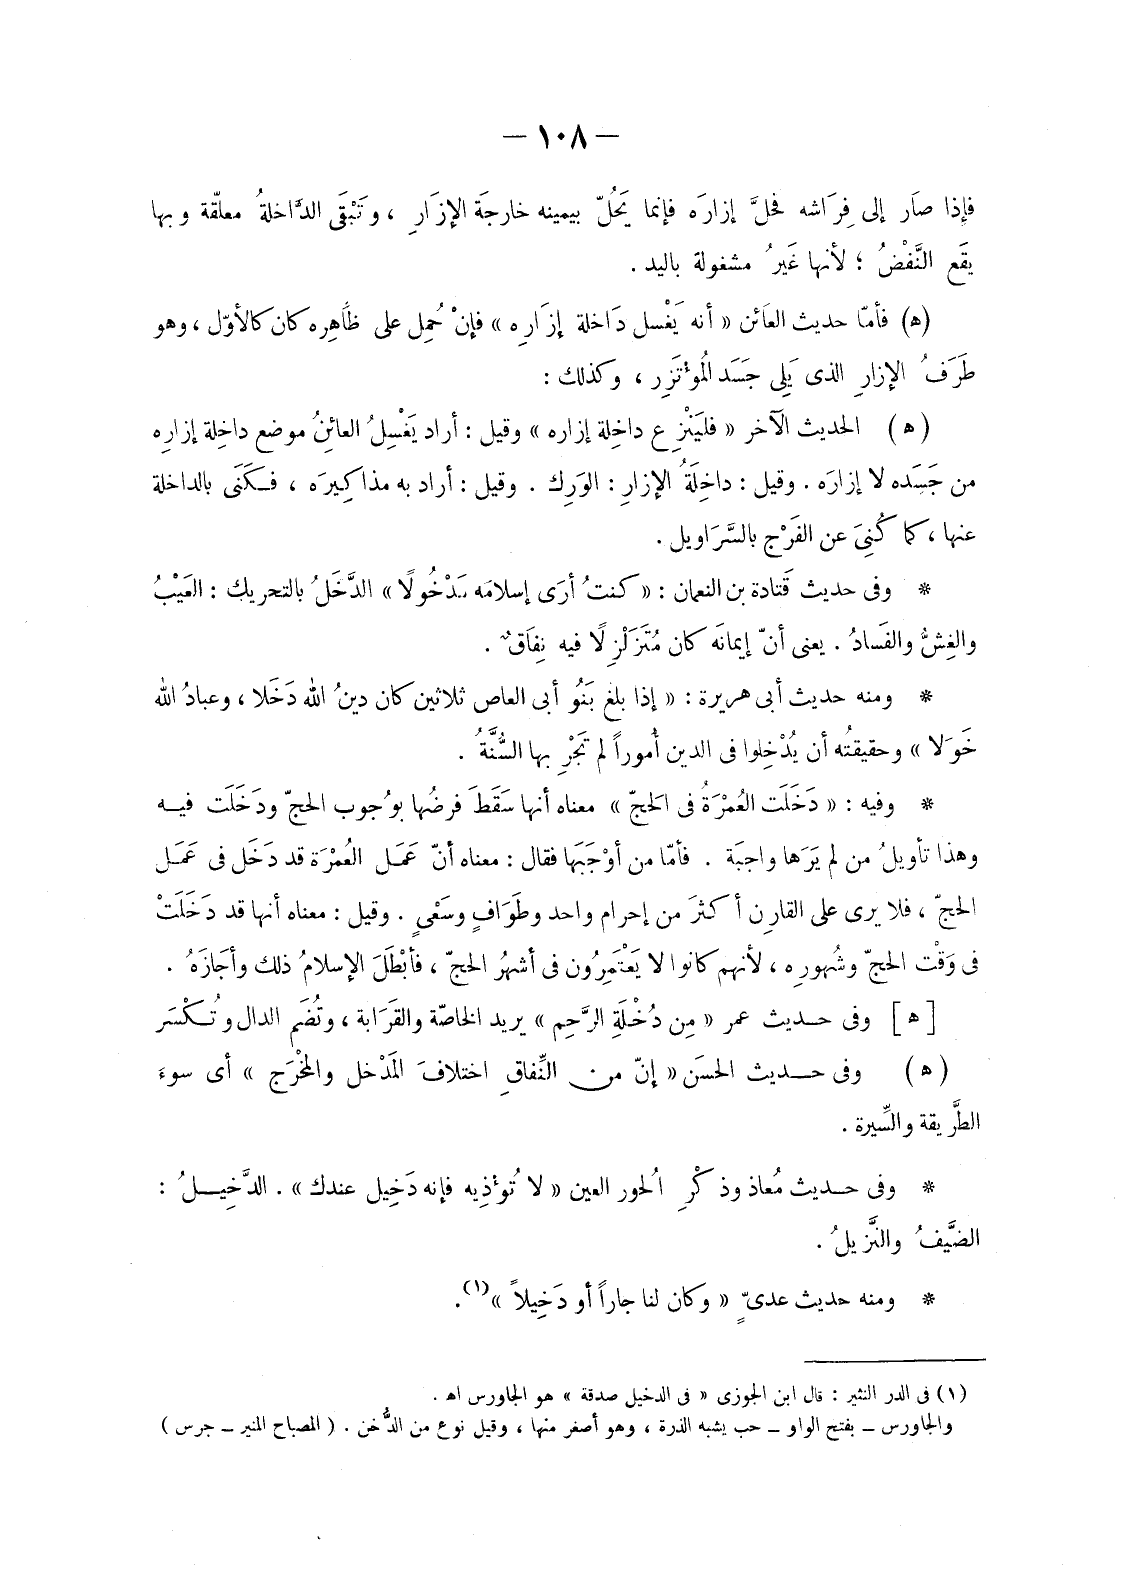 — ١٠٨ —
فإِذا صَار إلى فِرَاشه فحَلَّ إزارَه فإنما يَحُلّ بيمينه خارجَة الإزَارِ ، وتَبْقَى الدَّاخلةُ معلّقة وبها
يقَع النَّفْضُ ؛ لأنها غَيرُ مشغولة باليد .
(ه) فأمّا حديث العَائن « أنه يَغْسل دَاخلة إزَارِه » فإنْ حُمِل على ظَاهِره كان كالأوّل ، وهو
طَرَفُ الإزارِ الذى يَلِى جَسَد المُؤتَزِر ، وكذلك :
(ه) الحديث الآخر « فليَنْزِع داخِلة إزاره » وقيل : أراد يَغْسِلُ العائنُ موضع داخِلة إزارِه
من جَسَدِه لا إزارَه . وقيل : داخِلَةُ الإزارِ : الوَرِك . وقيل : أراد به مذاكِيرَه ، فكَنَى بالداخلة
عنها ، كما كُنِىَ عن الفَرْج بالسَّرَاويل .
* وفى حديث قَتادة بن النعمان : « كنتُ أرَى إسلامَه مَدْخُولًا » الدَّخَلُ بالتحريك : العَيْبُ
والغِشُّ والفَسادُ . يعنى أنّ إيمانَه كان مُتَزَلْزِلًا فيه نِفَاقٌ .
* ومنه حديث أبى هريرة : « إذا بلغ بَنُو أبى العاص ثلاثين كان دينُ الله دَخَلا ، وعبادُ الله
خَوَلا » وحقيقتُه أن يُدْخِلوا فى الدين أُموراً لم تَجْرِ بها السُّنَّةُ .
* وفيه : « دَخَلَت العُمْرَةُ فى الحَجّ » معناه أنها سَقَطَ فرضُها بوُجوب الحجّ ودَخَلَت فيه
وهذا تأويلُ من لم يَرَها واجبَة . فأمّا من أوْجَبَها فقال : معناه أنّ عَمَل العُمْرَة قد دَخَل فى عَمَل
الحجّ ، فلا يرى على القارِن أكثرَ من إحرام واحد وطَوَافٍ وسَعْىٍ . وقيل : معناه أنها قد دَخَلَتْ
فى وَقْت الحجّ وشُهورِه ، لأنهم كانوا لا يَعْتَمِرُون فى أشهُر الحجّ ، فأبْطَلَ الإسلامُ ذلك وأجَازَهُ .
[ه] وفى حديث عمر « مِن دُخْلَةِ الرَّحِم » يريد الخاصّة والقَرَابة ، وتُضَم الدال وتُكْسَر
(ه) وفى حديث الحسَن « إنّ من النِّفاقِ اختلافَ المَدْخل والمَخْرَج » أى سوءَ
الطَّريقة والسِّيرة .
* وفى حديث مُعاذ وذكْرِ الحُور العين « لا تُوْذِيه فإنه دَخِيل عندك » . الدَّخِيلُ :
الضَّيفُ والنَّزيلُ .
* ومنه حديث عدىٍّ « وكان لنا جاراً أو دَخِيلاً »(١) .
(١) فى الدر النثير : قال ابن الجوزى « فى الدخيل صدقة » هو الجاورس اه .
والجاورس – بفتح الواو – حب يشبه الذرة ، وهو أصغر منها ، وقيل نوع من الدُّخن . ( المصباح المنير – جرس )